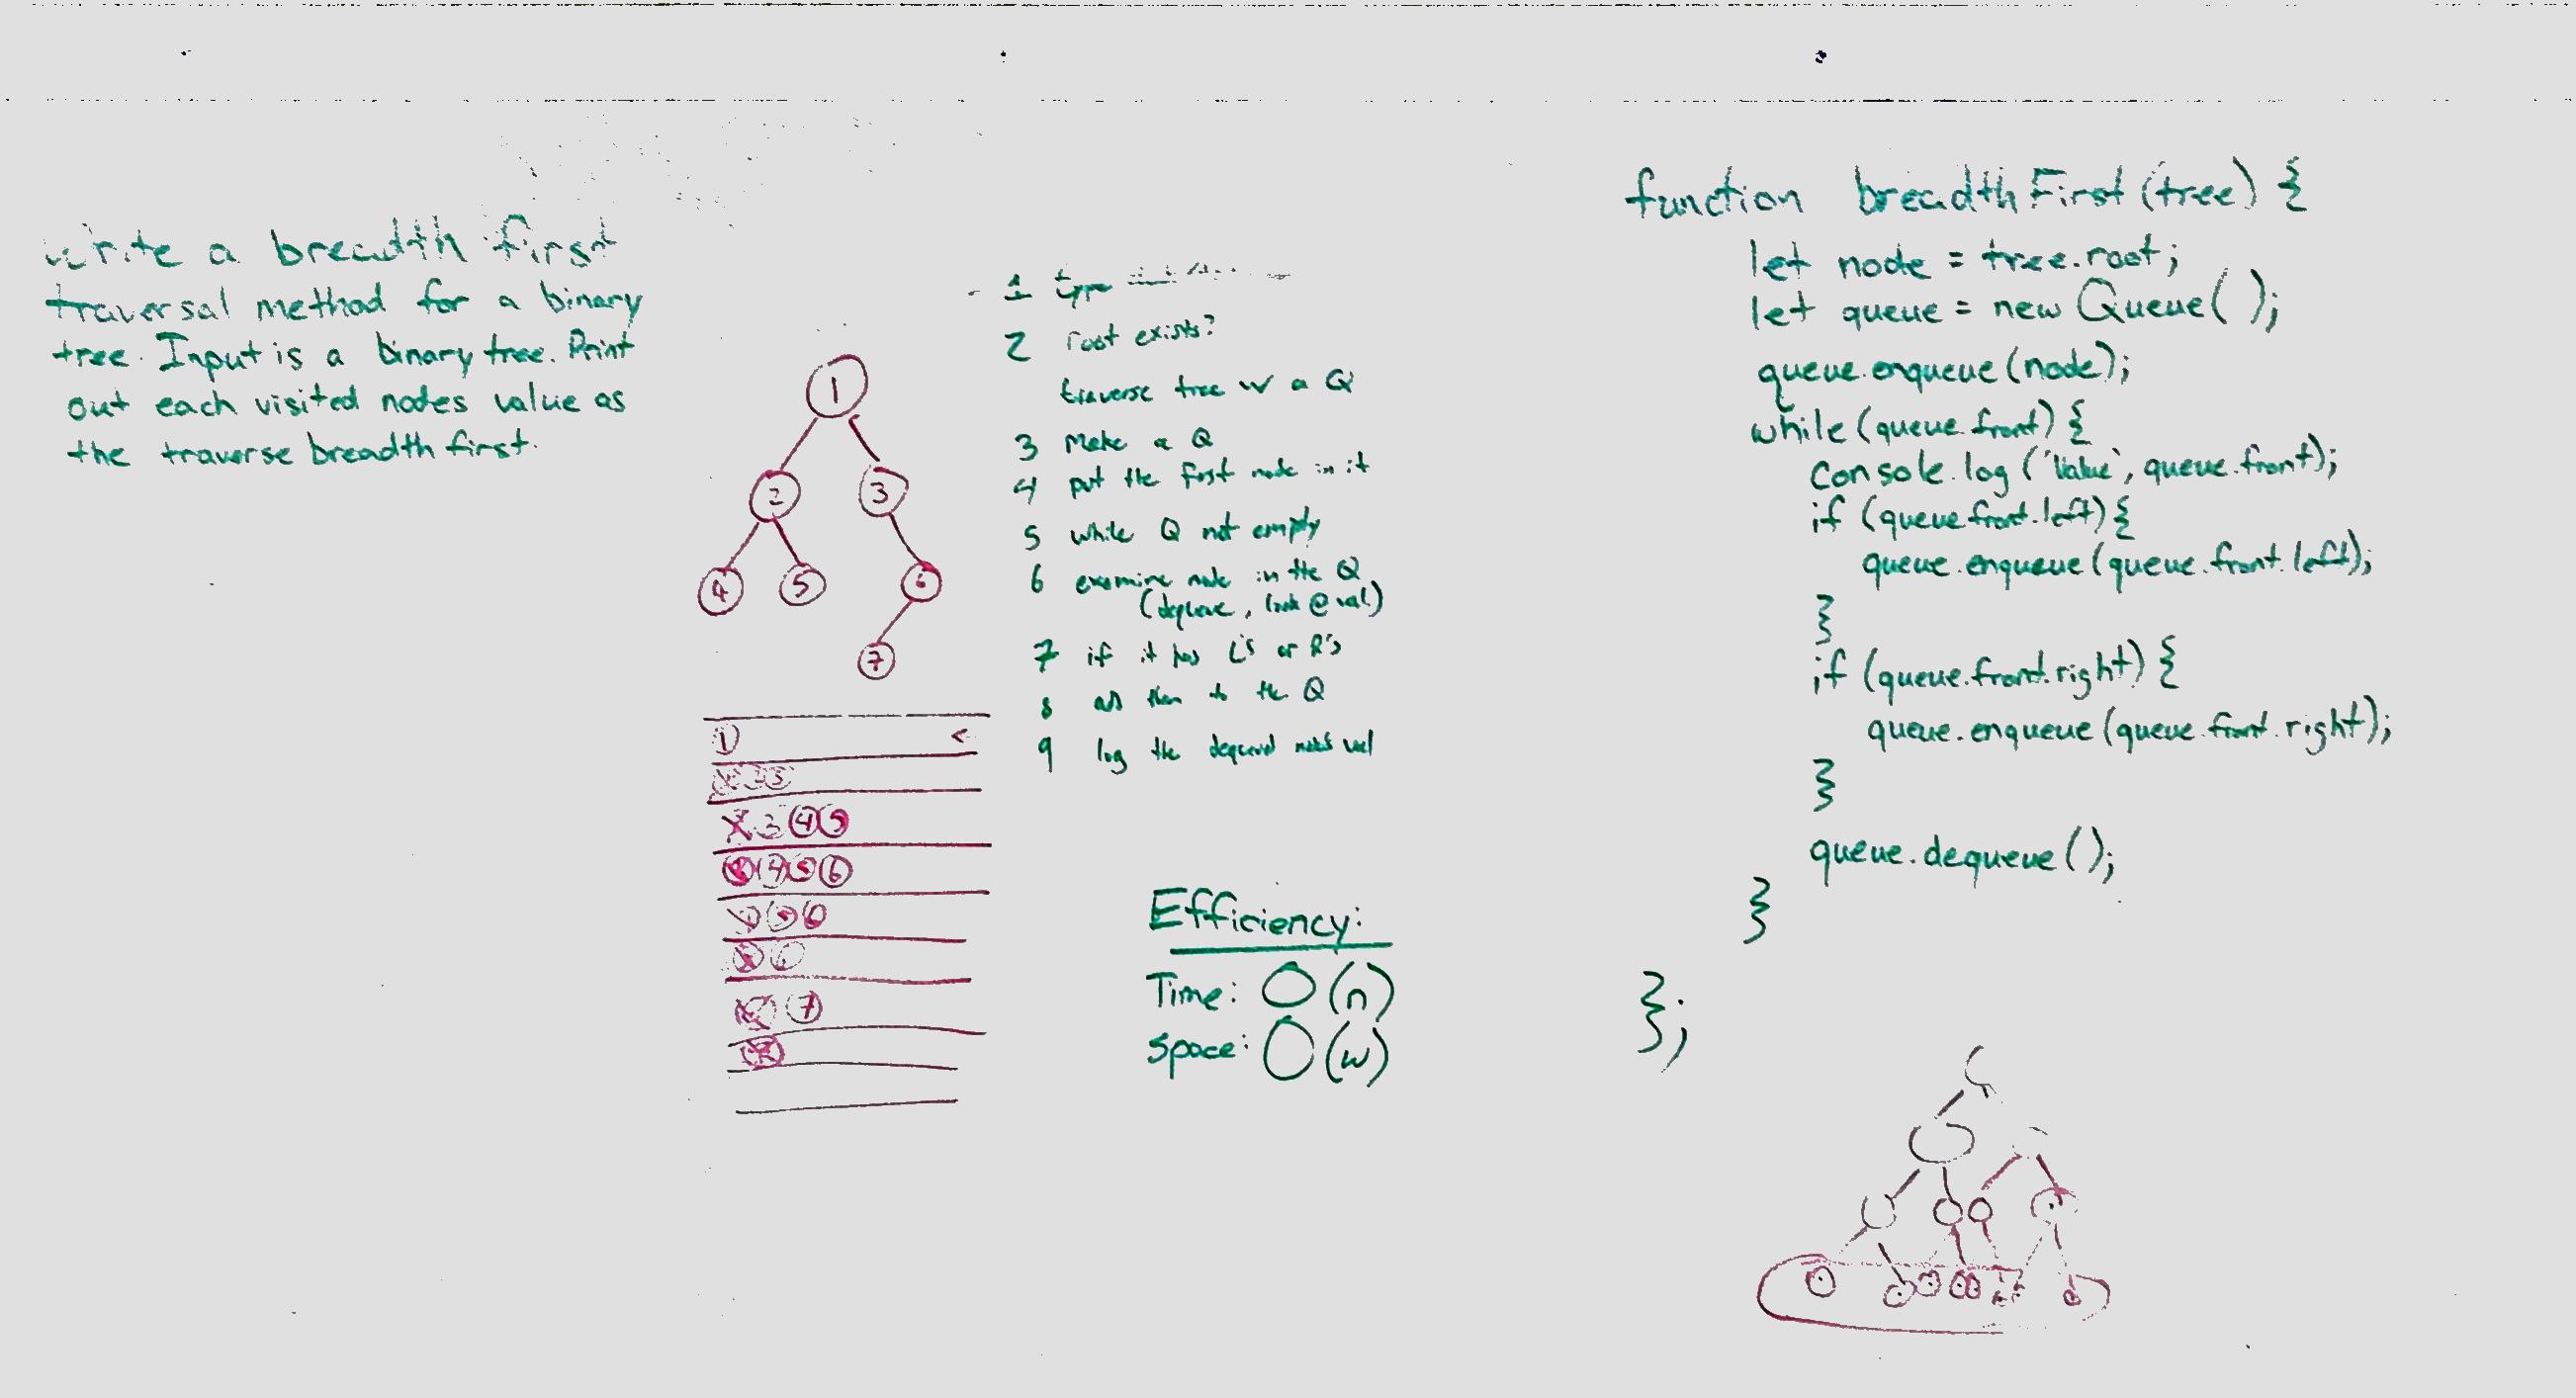 write a breadth first
traversal method for a binary
tree. Input is a binary tree. Print
out each visited nodes value as
the traverse breadth first.
1
2 3
4 5 6
7
1
3 4 5
6
6
7
1 type
2 root exists?
traverse tree w a Q
3 Make a Q
4 put the first node in it
5 while Q not empty
6 examine node in the Q
(dequeue, look @ val)
7 if it has L's or R's
8 add them to the Q
9 log the dequeued node's val
Efficiency:
Time: O(n)
Space: O(w)
function breadthFirst(tree) {
let node = tree.root;
let queue = new Queue();
queue.enqueue(node);
while(queue.front) {
console.log('Value', queue.front);
if (queue.front.left) {
queue.enqueue(queue.front.left);
}
if (queue.front.right) {
queue.enqueue(queue.front.right);
}
queue.dequeue();
}
};